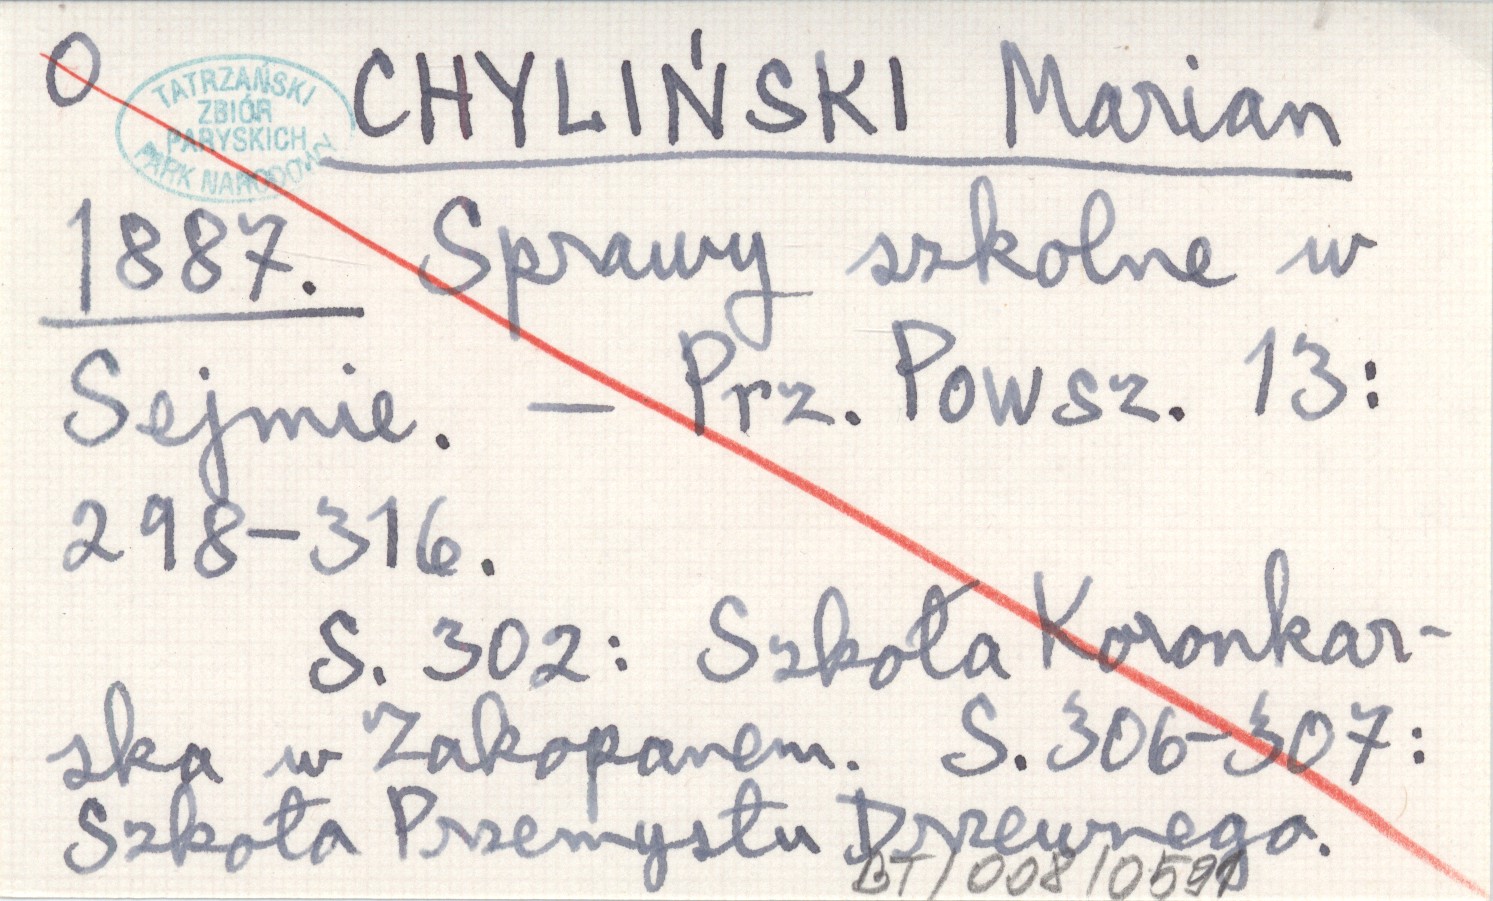 O CHYLIŃSKI Marian
TATRZAŃSKI
ZBIÓR
PARYSKICH
PARK NARODOWY
1887. Sprawy szkolne w
Sejmie. — Prz. Powsz. 13:
298-316.
S. 302: Szkoła Koronkar-
ska w Zakopanem. S. 306-307:
Szkoła Przemysłu Drzewnego.
BT/008/0591